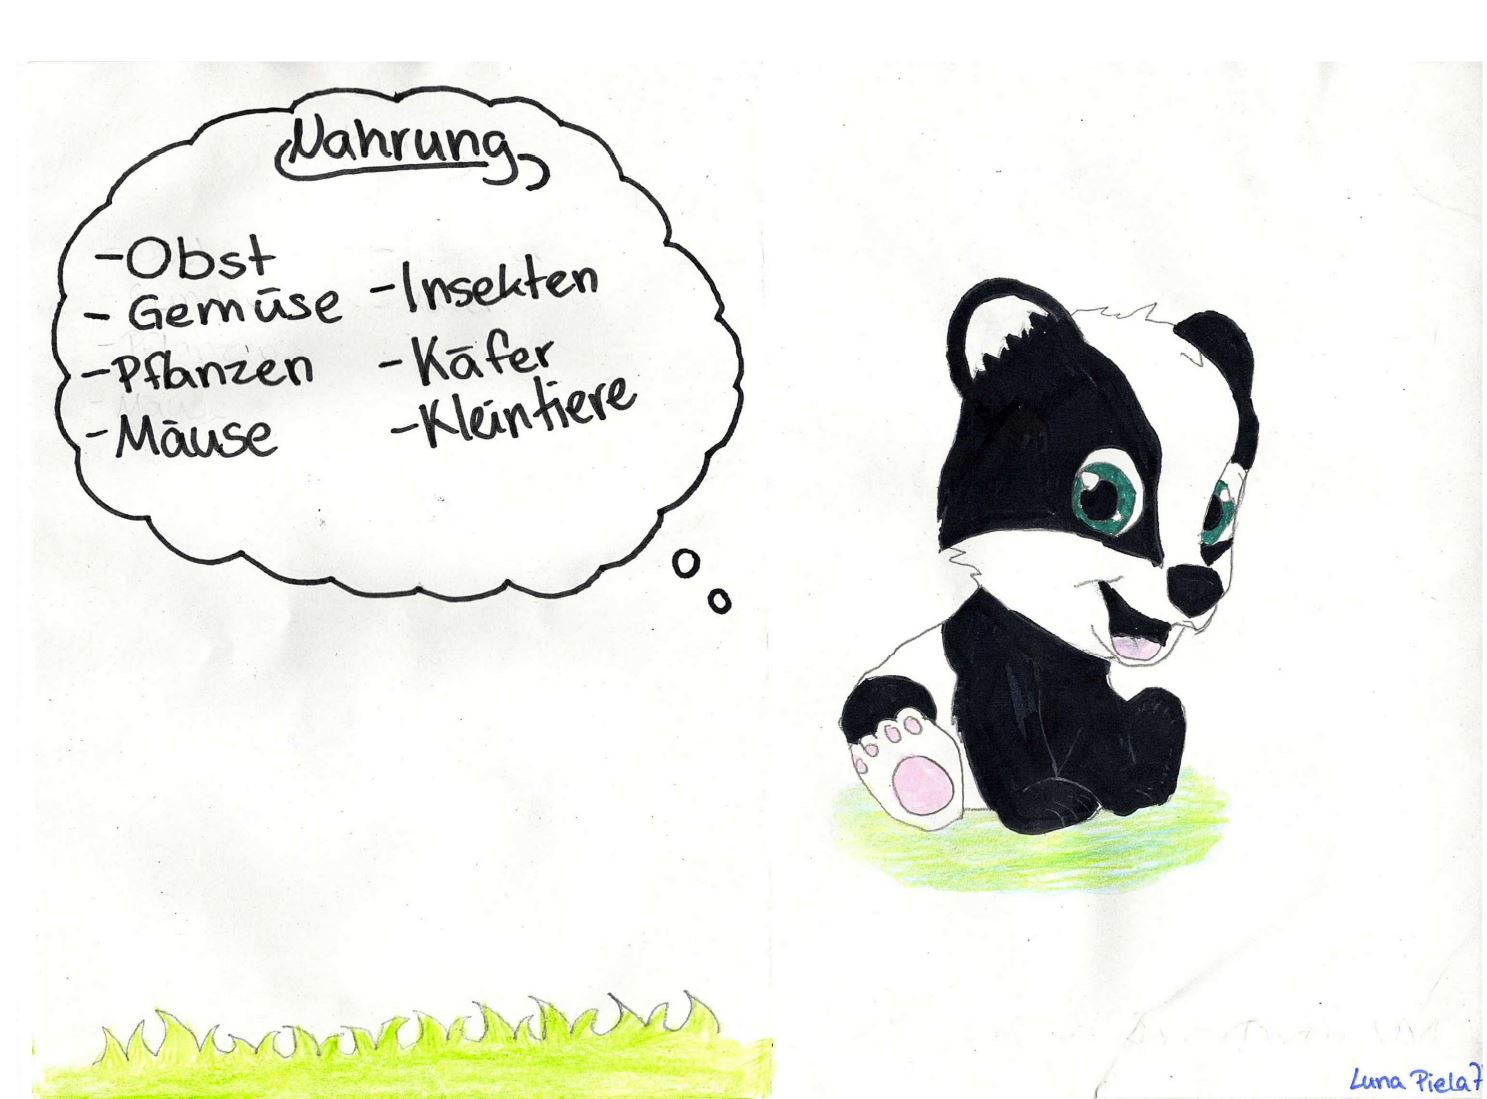 Nahrung
-Obst
- Gemüse
-Pflanzen
-Mäuse
-Insekten
-Käfer
-Kleintiere
Luna Piela 7